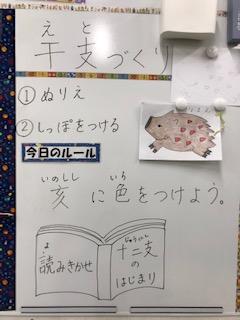 えと
干支づくり
①ぬりえ
②しっぽをつける
今日のルール
いのしし いろ
亥に色をつけよう。
よ
読みきかせ
じゅうにし
十二支
の
はじまり